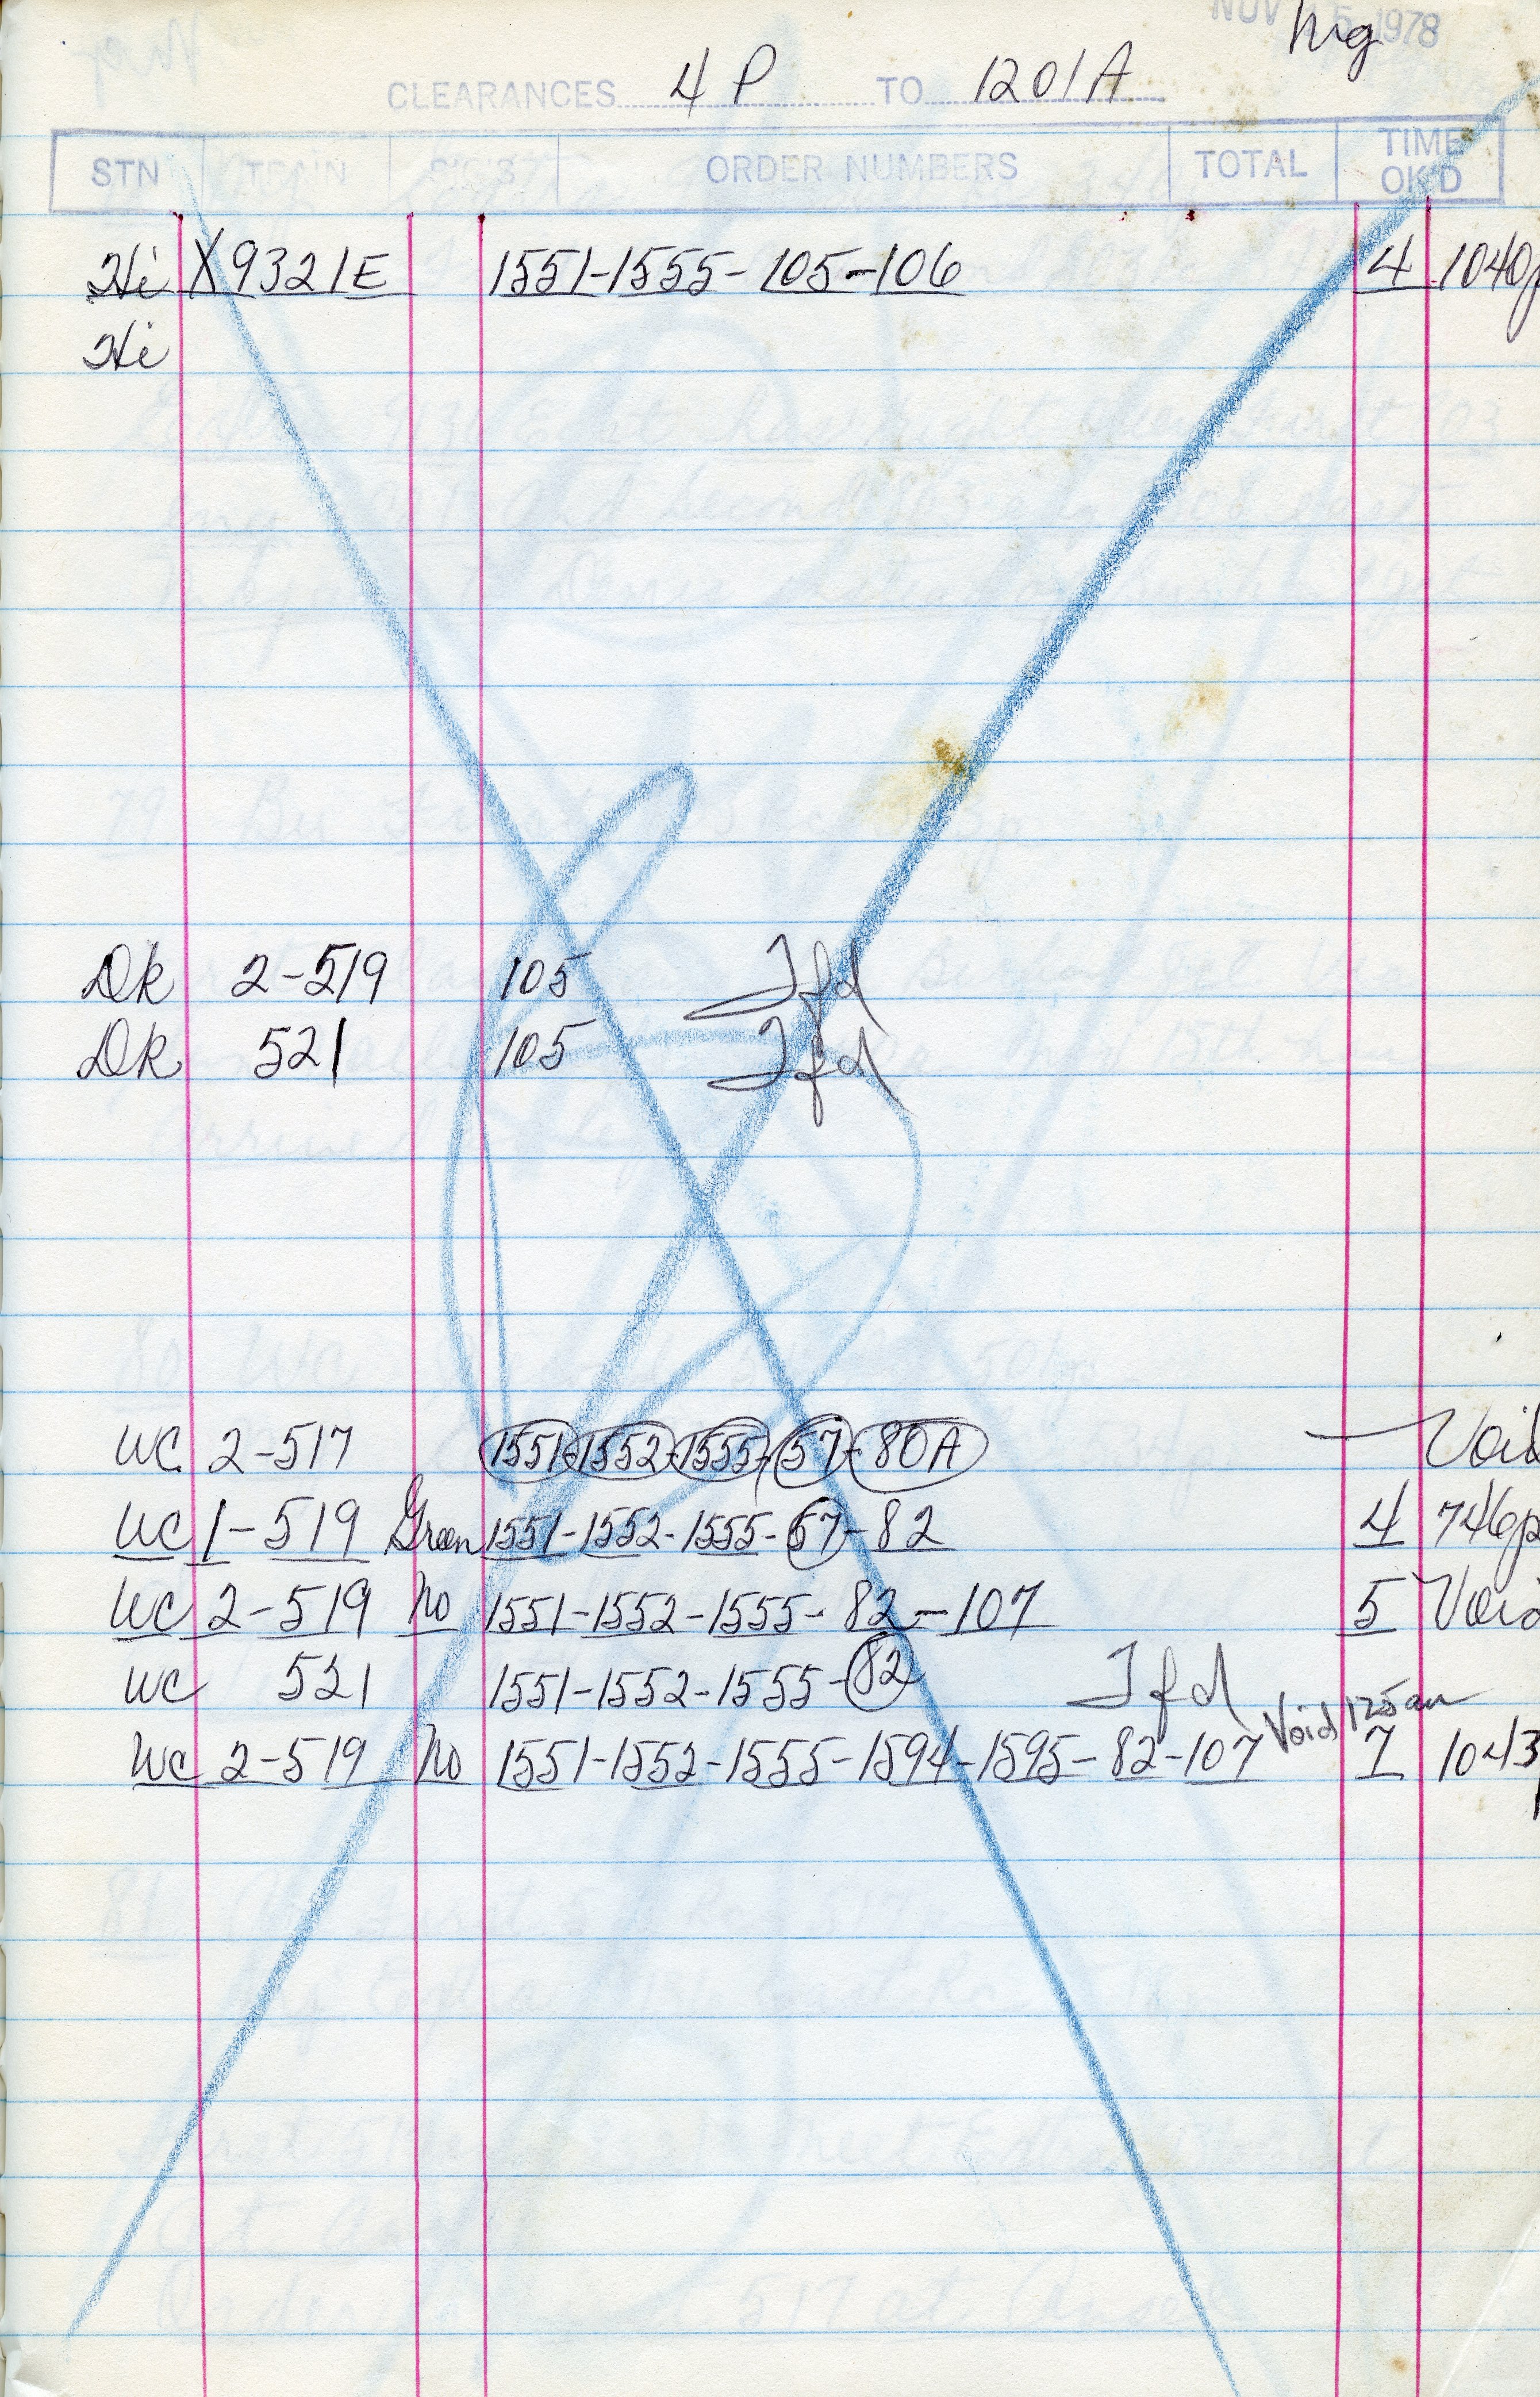 NOV 15 1978
Mg
CLEARANCES 4 P TO 1201A
STN TRAIN SIG'S ORDER NUMBERS TOTAL TIME OK'D
Hi X9321E 1551-1555-105-106 4 1040p
Hi
Dk 2-519 105 Tfd
Dk 521 105 Tfd
WC 2-517 1551-1552-1555-57-80A Void
WC 1-519 Green 1551-1552-1555-57-82 4 746p
WC 2-519 No 1551-1552-1555-82-107 5 Void
WC 521 1551-1552-1555-82 Tfd
WC 2-519 No 1551-1552-1555-1594-1595-82-107 Void 125am 7 1043p